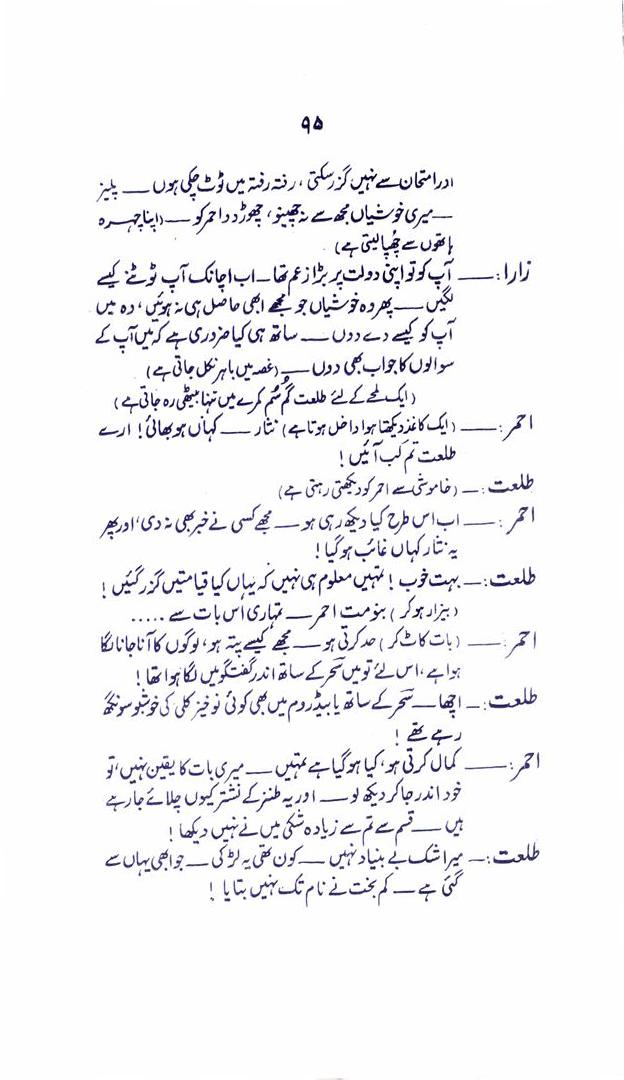 ۹۵
اور امتحان سے نہیں گزر سکتی، رفتہ رفتہ میں ٹوٹ چکی ہوں ـــ پلیز
ـــ میری خوشیاں مجھ سے نہ چھینو، چھوڑ دو احمر کو ـــ (اپنا چہرہ
ہاتھوں سے چھپا لیتی ہے)
زارا:ـــ آپ کو تو اپنی دولت پر بڑا زعم تھا ـــ اب اچانک آپ ٹوٹنے کیسے
لگیں ـــ پھر وہ خوشیاں جو مجھے ابھی حاصل ہی نہ ہوئیں، وہ میں
آپ کو کیسے دے دوں ـــ ساتھ ہی کیا ضروری ہے کہ میں آپ کے
سوالوں کا جواب بھی دوں ـــ (غصہ میں باہر نکل جاتی ہے)
(ایک لمحے کے لئے طلعت گُم سُم کمرے میں تنہا بیٹھی رہ جاتی ہے)
احمر:ـــ (ایک کاغذ دیکھتا ہوا داخل ہوتا ہے) نثار ـــ کہاں ہو بھائی! ارے
طلعت تم کب آئیں!
طلعت:ـــ (خاموشی سے احمر کو دیکھتی رہتی ہے)
احمر:ـــ اب اس طرح کیا دیکھ رہی ہو ـــ مجھے کسی نے خبر بھی نہ دی، اور پھر
یہ نثار کہاں غائب ہو گیا!
طلعت:ـــ بہت خوب! تمہیں معلوم ہی نہیں کہ یہاں کیا قیامتیں گزر گئیں!
(بیزار ہو کر) بنو مت احمر ـــ تمہاری اس بات سے .....
احمر:ـــ (بات کاٹ کر) حد کرتی ہو ـــ مجھے کیسے پتہ ہو، لوگوں کا آنا جانا لگا
ہوا ہے، اس لئے تو میں سحر کے ساتھ اندر گفتگو میں لگا ہوا تھا!
طلعت:ـــ اچھا ـــ سحر کے ساتھ یا بیڈ روم میں بھی کوئی نوخیز کلی کی خوشبو سونگھ
رہے تھے!
احمر:ـــ کمال کرتی ہو، کیا ہو گیا ہے تمہیں ـــ میری بات کا یقین نہیں، تو
خود اندر جا کر دیکھ لو ـــ اور یہ طنز کے نشتر کیوں چلائے جا رہے
ہیں ـــ قسم سے تم سے زیادہ شکی میں نے نہیں دیکھا!
طلعت:ـــ میرا شک بے بنیاد نہیں ـــ کون تھی یہ لڑکی ـــ جو ابھی یہاں سے
گئی ہے ـــ کم بخت نے نام تک نہیں بتایا!